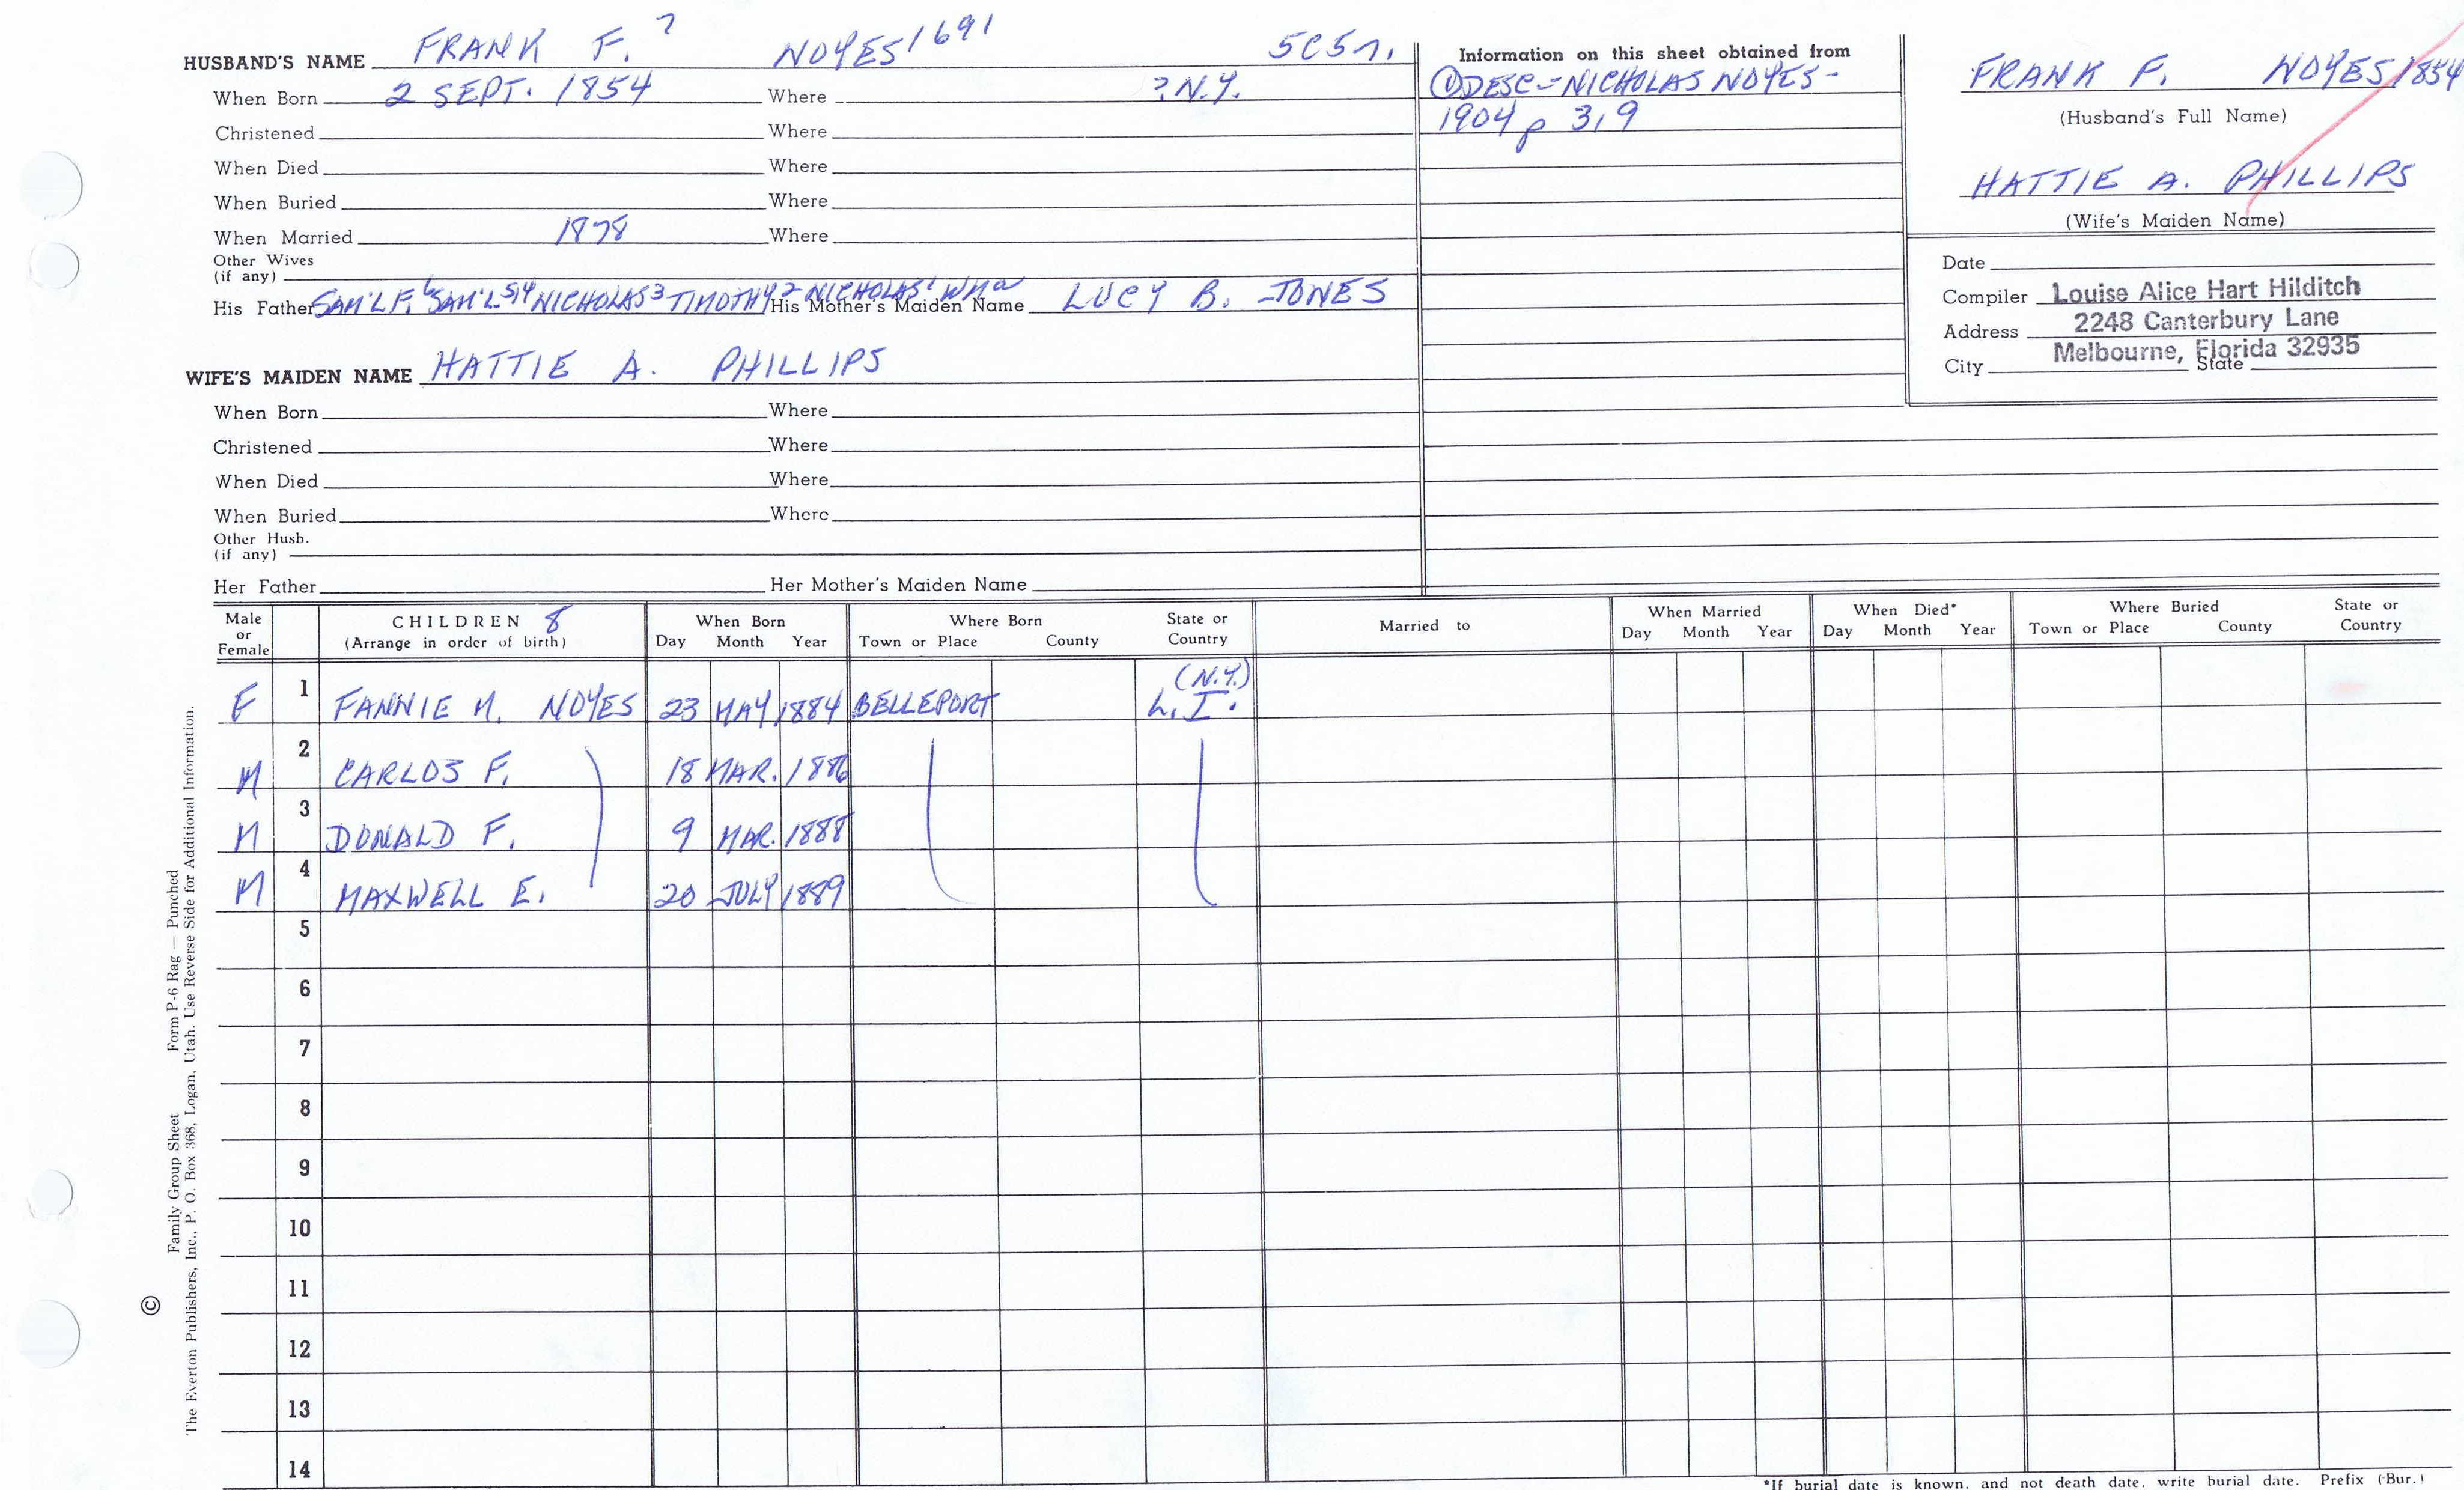 HUSBAND'S NAME FRANK F. 7 NOYES 1691 5C5r.
When Born 2 SEPT. 1854 Where ? N.Y.
Christened Where
When Died Where
When Buried Where
When Married 1878 Where
Other Wives
(if any)
His Father SAM'L F. 6 SAM'L 5,4 NICHOLAS 3 TIMOTHY 2 NICHOLAS 1 Wm a His Mother's Maiden Name LUCY B. JONES
WIFE'S MAIDEN NAME HATTIE A. PHILLIPS
When Born Where
Christened Where
When Died Where
When Buried Where
Other Husb.
(if any)
Her Father Her Mother's Maiden Name
Information on this sheet obtained from
① DESC - NICHOLAS NOYES -
1904 p 3,9
FRANK F. NOYES 1854
(Husband's Full Name)
HATTIE A. PHILLIPS
(Wife's Maiden Name)
Date
Compiler Louise Alice Hart Hilditch
Address 2248 Canterbury Lane
City Melbourne, Florida 32935 State
Male or Female CHILDREN 8 (Arrange in order of birth) When Born Day Month Year Where Born Town or Place County State or Country Married to When Married Day Month Year When Died* Day Month Year Where Buried Town or Place County State or Country
F 1 FANNIE M. NOYES 23 MAY 1884 BELLEPORT (N.Y.) L.I.
M 2 CARLOS F. 18 MAR. 1886
M 3 DONALD F. 9 MAR. 1888
M 4 MAXWELL E. 20 JULY 1889
5
6
7
8
9
10
11
12
13
14
*If burial date is known, and not death date, write burial date. Prefix (Bur.)
Family Group Sheet Form P-6 Rag — Punched
© The Everton Publishers, Inc., P. O. Box 368, Logan, Utah. Use Reverse Side for Additional Information.